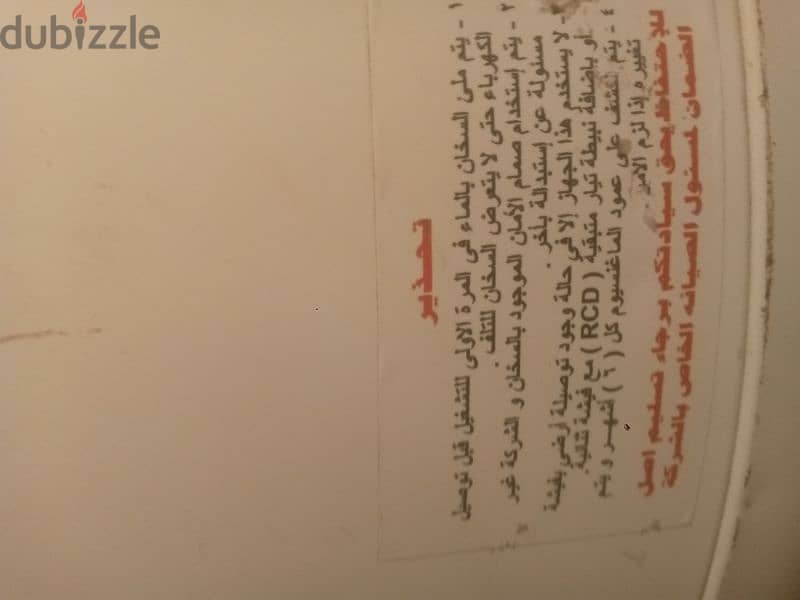 dubizzle
تحذير
١ - يتم ملئ السخان بالماء فى المرة الاولى للتشغيل قبل توصيل
الكهرباء حتى لا يتعرض السخان للتلف.
٢ - يتم إستخدام صمام الأمان الموجود بالسخان و الشركة غير
مسئولة عن إستبدالة بأخر.
- لا يستخدم هذا الجهاز إلا في حالة وجود توصيلة أرضي بفيشة
أو بإضافة نبيطة تيار متبقية (RCD) مع فيشة ثنائية.
٤ - يتم الكشف على عمود الماغنسيوم كل (٦) أشهر و يتم
تغييره إذا لزم الأمر.
للإحتفاظ بحق سيادتكم برجاء تسليم اصل
الضمان لمسئول الصيانه الخاص بالشركة